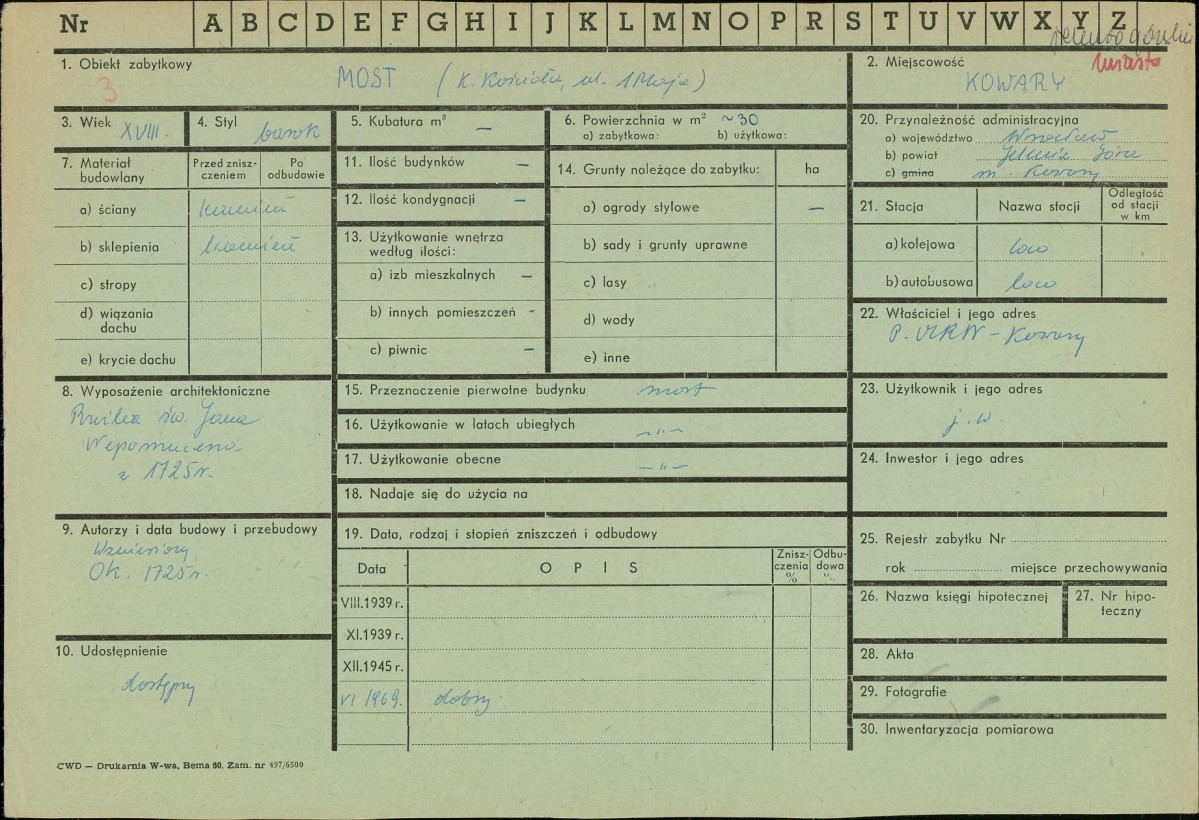 Nr A B C D E F G H I J K L M N O P R S T U V W X Y Z
miasto
1. Obiekt zabytkowy
MOST (k. Kościoła, ul. 1 Maja)
3
2. Miejscowość
KOWARY
3. Wiek XVIII.
4. Styl barok
5. Kubatura m³ —
6. Powierzchnia w m² ~30
a) zabytkowa: b) użytkowa:
7. Materiał budowlany
Przed znisz-
czeniem
Po
odbudowie
a) ściany kamień
b) sklepienia kamień
c) stropy
d) wiązania
dachu
e) krycie dachu
8. Wyposażenie architektoniczne
Rzeźba św. Jana
Nepomucena
z 1725 r.
9. Autorzy i data budowy i przebudowy
Wzniesiony
Ok. 1725 r.
10. Udostępnienie
dostępny
11. Ilość budynków —
12. Ilość kondygnacji —
13. Użytkowanie wnętrza
według ilości:
a) izb mieszkalnych —
b) innych pomieszczeń -
c) piwnic —
14. Grunty należące do zabytku: ha
a) ogrody stylowe —
b) sady i grunty uprawne
c) lasy
d) wody
e) inne
15. Przeznaczenie pierwotne budynku most
16. Użytkowanie w latach ubiegłych —"—
17. Użytkowanie obecne —"—
18. Nadaje się do użycia na
19. Data, rodzaj i stopień zniszczeń i odbudowy
Data OPIS
Znisz-
czenia
%
Odbu-
dowa
%
VIII.1939 r.
XI.1939 r.
XII.1945 r.
VI 1969. dobry
20. Przynależność administracyjna
a) województwo Wrocław
b) powiat Jelenia Góra
c) gmina m. Kowary
21. Stacja Nazwa stacji
Odległość
od stacji
w km
a) kolejowa loco
b) autobusowa loco
22. Właściciel i jego adres
P. MRN - Kowary
23. Użytkownik i jego adres
j.w.
24. Inwestor i jego adres
25. Rejestr zabytku Nr
rok miejsce przechowywania
26. Nazwa księgi hipotecznej
27. Nr hipo-
teczny
28. Akta
29. Fotografie
30. Inwentaryzacja pomiarowa
CWD — Drukarnia W-wa, Bema 60. Zam. nr 497/6500